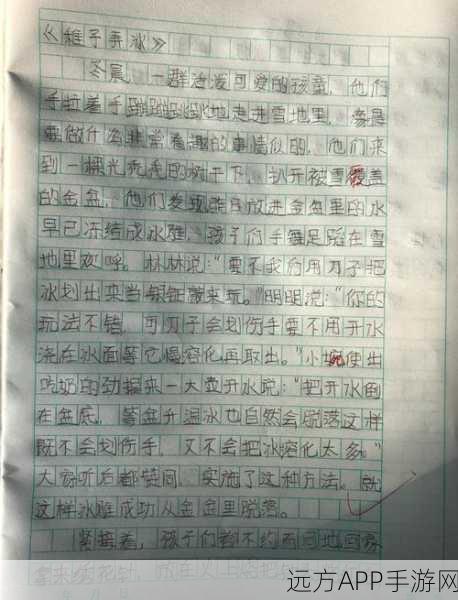 《稚子弄冰》
冬晨，一群活泼可爱的孩童，他们
手拉着手蹦蹦跳跳地走进雪地里，像是
要做什么非常有趣的事情似的，他们来
到一棵光秃秃的树干下，扒开被雪覆盖
的金盆，他们发现昨日放进金盆里的水
早已冻结成冰雕，孩子们手舞足蹈在雪
地里欢呼。林林说：“要不我们用刀子把
冰划出来当银钲敲来玩。”明明说：“你的
玩法不错，可刀子会划伤手要不用开水
浇在冰面等它慢溶化再取出。”小 使出
吃奶的劲提来一大壶开水说：“把开水倒
在盆底，等盆升温冰也自然会脱落这样
既不会划伤手，又不会把冰溶化太多。”
大家听后都赞同，实施了这种方法。就
这样冰雕成功从金盆里脱落。
紧接着，孩子们都不约而同地回家
拿来绣花针，放在火上
远方APP手游网